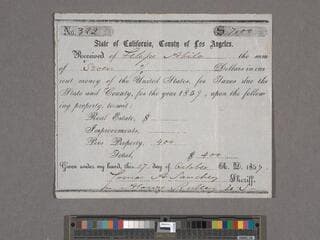 No. 392 $
State of California, County of Los Angeles.
Received of Felipe Abila the sum
of Seven Dollars in cur
rent money of the United States, for Taxes due the
State and County, for the year 1857, upon the follow-
ing property, to wit:
Real Estate, $
Improvements,
Pers Property, 400
Total, $ 400
Given under my hand, this 27 day of October A. D. 1857
Tomas A. Sanchez
Sheriff.